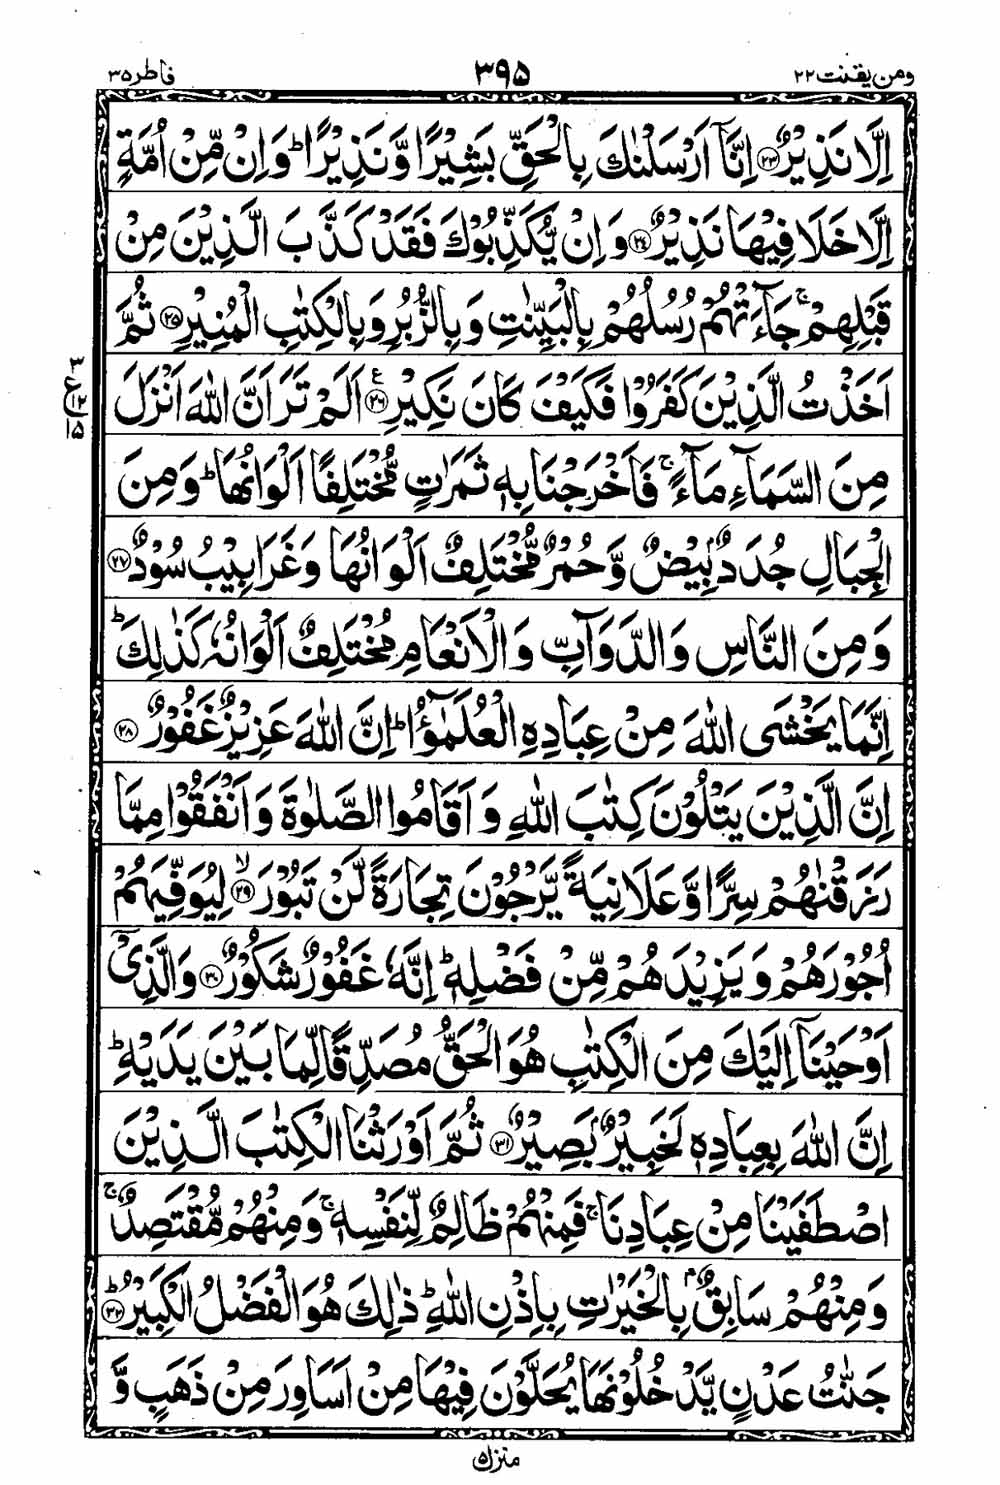 ومن يقنت ٢٢
٣٩٥
فاطر ٣٥
اِلَّا نَذِيْرٌ ﴿٢٣﴾ اِنَّاۤ اَرْسَلْنٰكَ بِالْحَقِّ بَشِيْرًا وَّنَذِيْرًا ؕ وَاِنْ مِّنْ اُمَّةٍ
اِلَّا خَلَا فِيْهَا نَذِيْرٌ ﴿٢٤﴾ وَاِنْ يُّكَذِّبُوْكَ فَقَدْ كَذَّبَ الَّذِيْنَ مِنْ
قَبْلِهِمْ ۚ جَآءَتْهُمْ رُسُلُهُمْ بِالْبَيِّنٰتِ وَبِالزُّبُرِ وَبِالْكِتٰبِ الْمُنِيْرِ ﴿٢٥﴾ ثُمَّ
اَخَذْتُ الَّذِيْنَ كَفَرُوْا فَكَيْفَ كَانَ نَكِيْرِ ﴿٢٦﴾ ع اَلَمْ تَرَ اَنَّ اللّٰهَ اَنْزَلَ
٣ ع ١٢ ١٥
مِنَ السَّمَآءِ مَآءً ۚ فَاَخْرَجْنَا بِهٖ ثَمَرٰتٍ مُّخْتَلِفًا اَلْوَانُهَا ؕ وَمِنَ
الْجِبَالِ جُدَدٌۢ بِيْضٌ وَّحُمْرٌ مُّخْتَلِفٌ اَلْوَانُهَا وَغَرَابِيْبُ سُوْدٌ ﴿٢٧﴾
وَمِنَ النَّاسِ وَالدَّوَآبِّ وَالْاَنْعَامِ مُخْتَلِفٌ اَلْوَانُهٗ كَذٰلِكَ ؕ
اِنَّمَا يَخْشَى اللّٰهَ مِنْ عِبَادِهِ الْعُلَمٰٓؤُا ؕ اِنَّ اللّٰهَ عَزِيْزٌ غَفُوْرٌ ﴿٢٨﴾
اِنَّ الَّذِيْنَ يَتْلُوْنَ كِتٰبَ اللّٰهِ وَاَقَامُوا الصَّلٰوةَ وَاَنْفَقُوْا مِمَّا
رَزَقْنٰهُمْ سِرًّا وَّعَلَانِيَةً يَّرْجُوْنَ تِجَارَةً لَّنْ تَبُوْرَ ۙ﴿٢٩﴾ لِيُوَفِّيَهُمْ
اُجُوْرَهُمْ وَيَزِيْدَهُمْ مِّنْ فَضْلِهٖ ؕ اِنَّهٗ غَفُوْرٌ شَكُوْرٌ ﴿٣٠﴾ وَالَّذِيْۤ
اَوْحَيْنَاۤ اِلَيْكَ مِنَ الْكِتٰبِ هُوَ الْحَقُّ مُصَدِّقًا لِّمَا بَيْنَ يَدَيْهِ ؕ
اِنَّ اللّٰهَ بِعِبَادِهٖ لَخَبِيْرٌۢ بَصِيْرٌ ﴿٣١﴾ ثُمَّ اَوْرَثْنَا الْكِتٰبَ الَّذِيْنَ
اصْطَفَيْنَا مِنْ عِبَادِنَا ۚ فَمِنْهُمْ ظَالِمٌ لِّنَفْسِهٖ ۚ وَمِنْهُمْ مُّقْتَصِدٌ ۚ
وَمِنْهُمْ سَابِقٌۢ بِالْخَيْرٰتِ بِاِذْنِ اللّٰهِ ؕ ذٰلِكَ هُوَ الْفَضْلُ الْكَبِيْرُ ؕ﴿٣٢﴾
جَنّٰتُ عَدْنٍ يَّدْخُلُوْنَهَا يُحَلَّوْنَ فِيْهَا مِنْ اَسَاوِرَ مِنْ ذَهَبٍ وَّ
منزل ٥